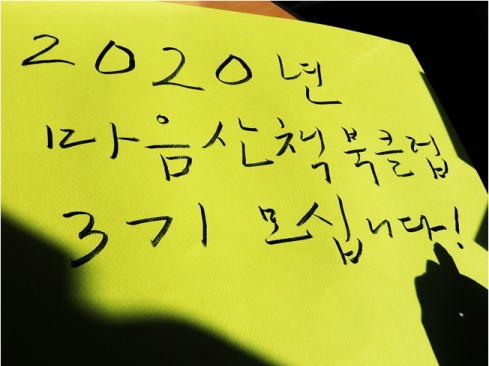 2020년
마음산책북클럽
3기 모십니다!